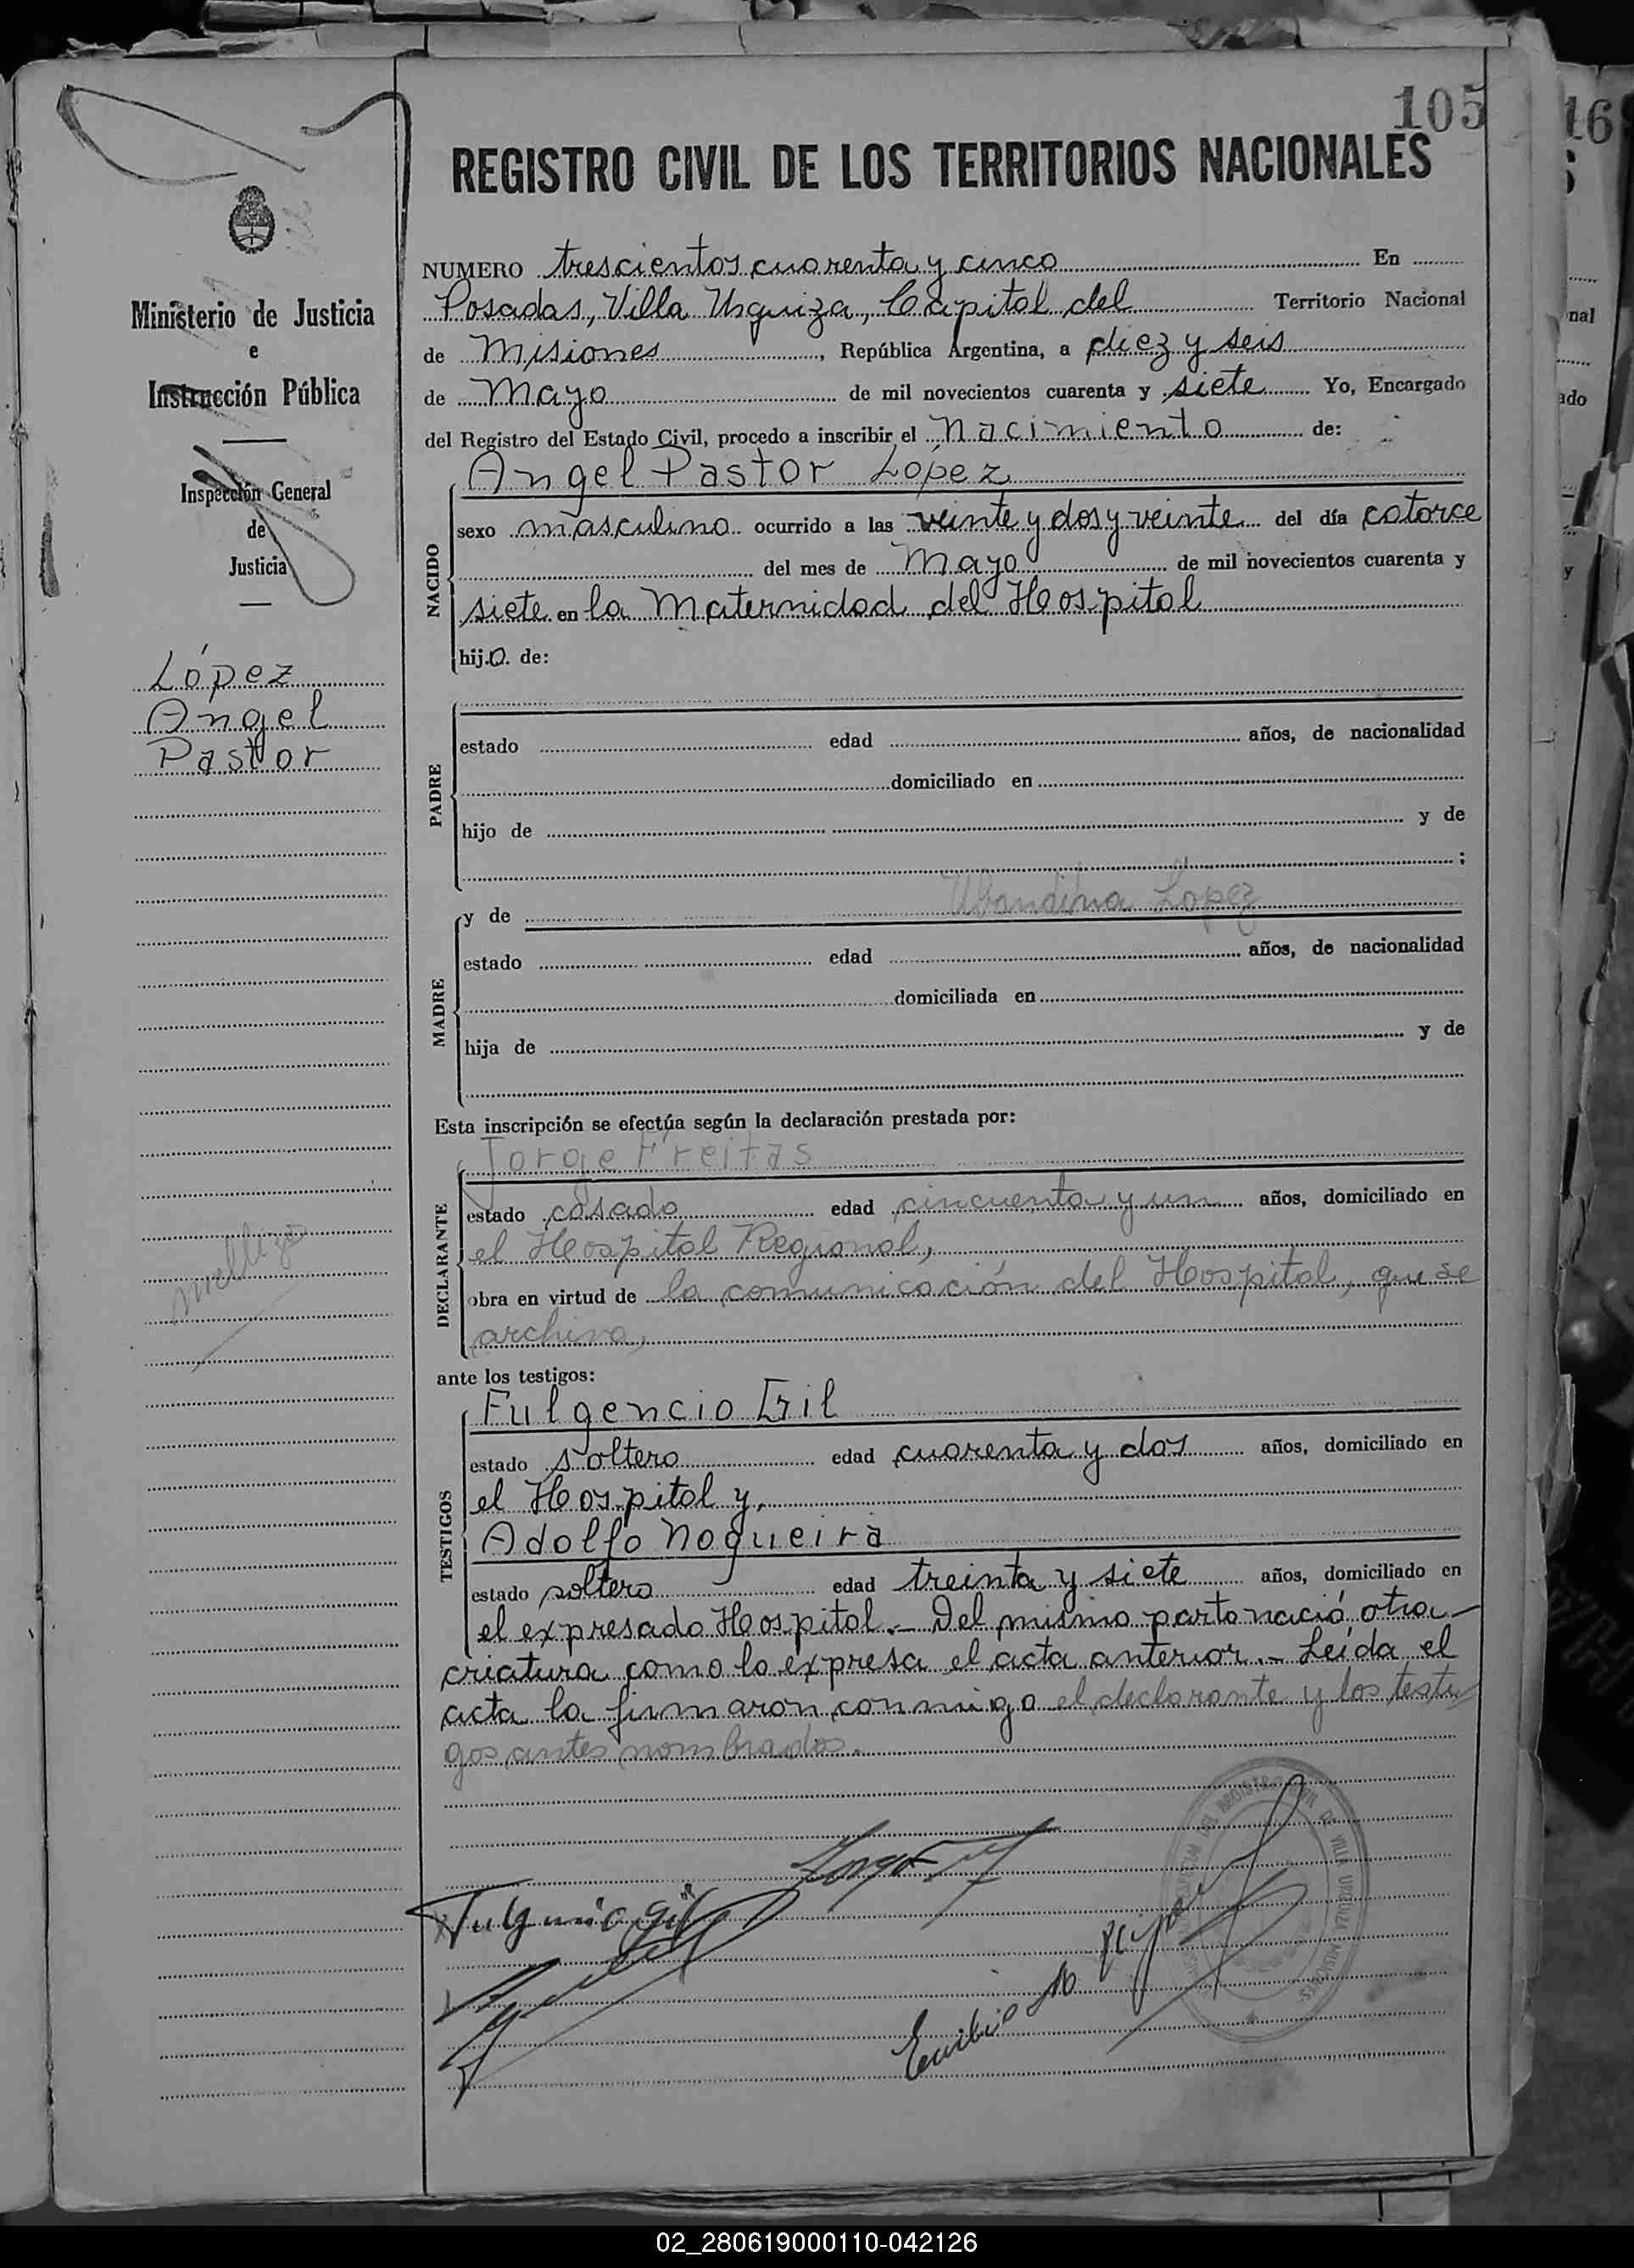 105
16
REGISTRO CIVIL DE LOS TERRITORIOS NACIONALES
Ministerio de Justicia
e
Instrucción Pública
Inspección General
de
Justicia
López
Angel
Pastor
mellizo
NUMERO trescientos cuarenta y cinco En
Posadas, Villa Urquiza, Capital del Territorio Nacional
de Misiones, República Argentina, a diez y seis
de Mayo de mil novecientos cuarenta y siete Yo, Encargado
del Registro del Estado Civil, procedo a inscribir el Nacimiento de:
Angel Pastor López
NACIDO
sexo masculino ocurrido a las veinte y dos y veinte del día catorce
del mes de Mayo de mil novecientos cuarenta y
siete en la Maternidad del Hospital
hijo de:
PADRE
estado edad años, de nacionalidad
domiciliado en
hijo de y de
;
MADRE
y de López
estado edad años, de nacionalidad
domiciliada en
hija de y de
Esta inscripción se efectúa según la declaración prestada por:
DECLARANTE
Jorge Freitas
estado casado edad cincuenta y un años, domiciliado en
el Hospital Regional,
obra en virtud de la comunicación del Hospital, que se
archiva,
ante los testigos:
TESTIGOS
Fulgencio Gil
estado soltero edad cuarenta y dos años, domiciliado en
el Hospital y,
Adolfo Nogueira
estado soltero edad treinta y siete años, domiciliado en
el expresado Hospital.- Del mismo parto nació otra
criatura como lo expresa el acta anterior.- Leída el
acta la firmaron conmigo el declarante y los testi
gos antes nombrados.
Fulgencio Gil
Emilio
VILLA URQUIZA MISIONES
02_280619000110-042126